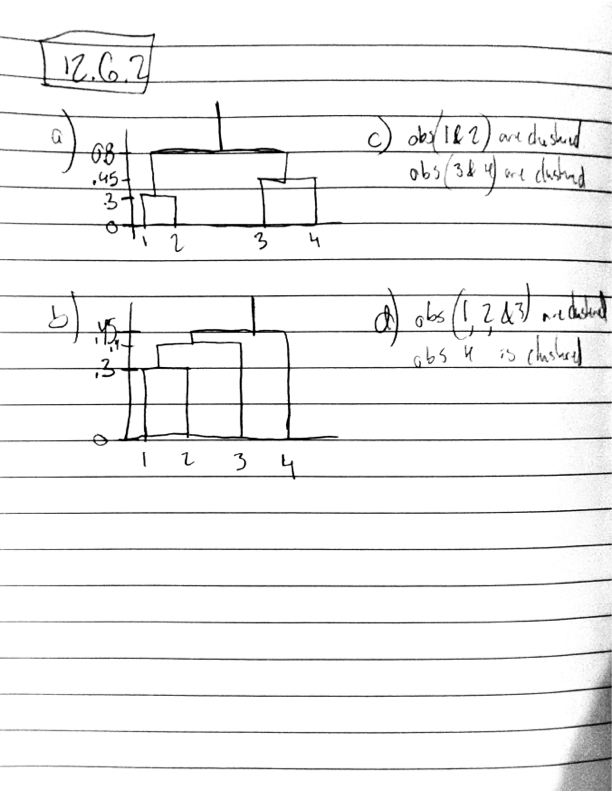 12.6.2
a)
0.8
.45
.3
0
1 2 3 4
c) obs(1 & 2) are clustered
obs(3 & 4) are clustered
b)
.45
.4
.3
0
1 2 3 4
d) obs (1, 2, & 3) are clustered
obs 4 is clustered